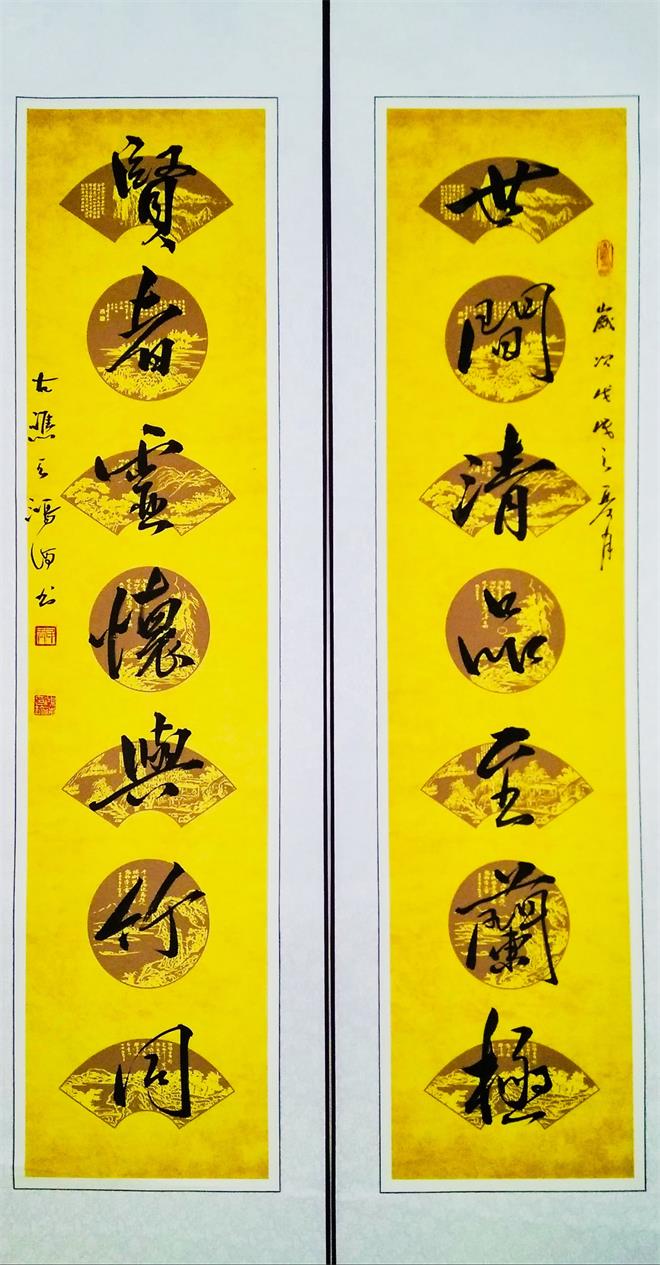 世間清品至蘭極
歲次戊戌之琴月
賢者虛懷與竹同
古譙王鴻酒書